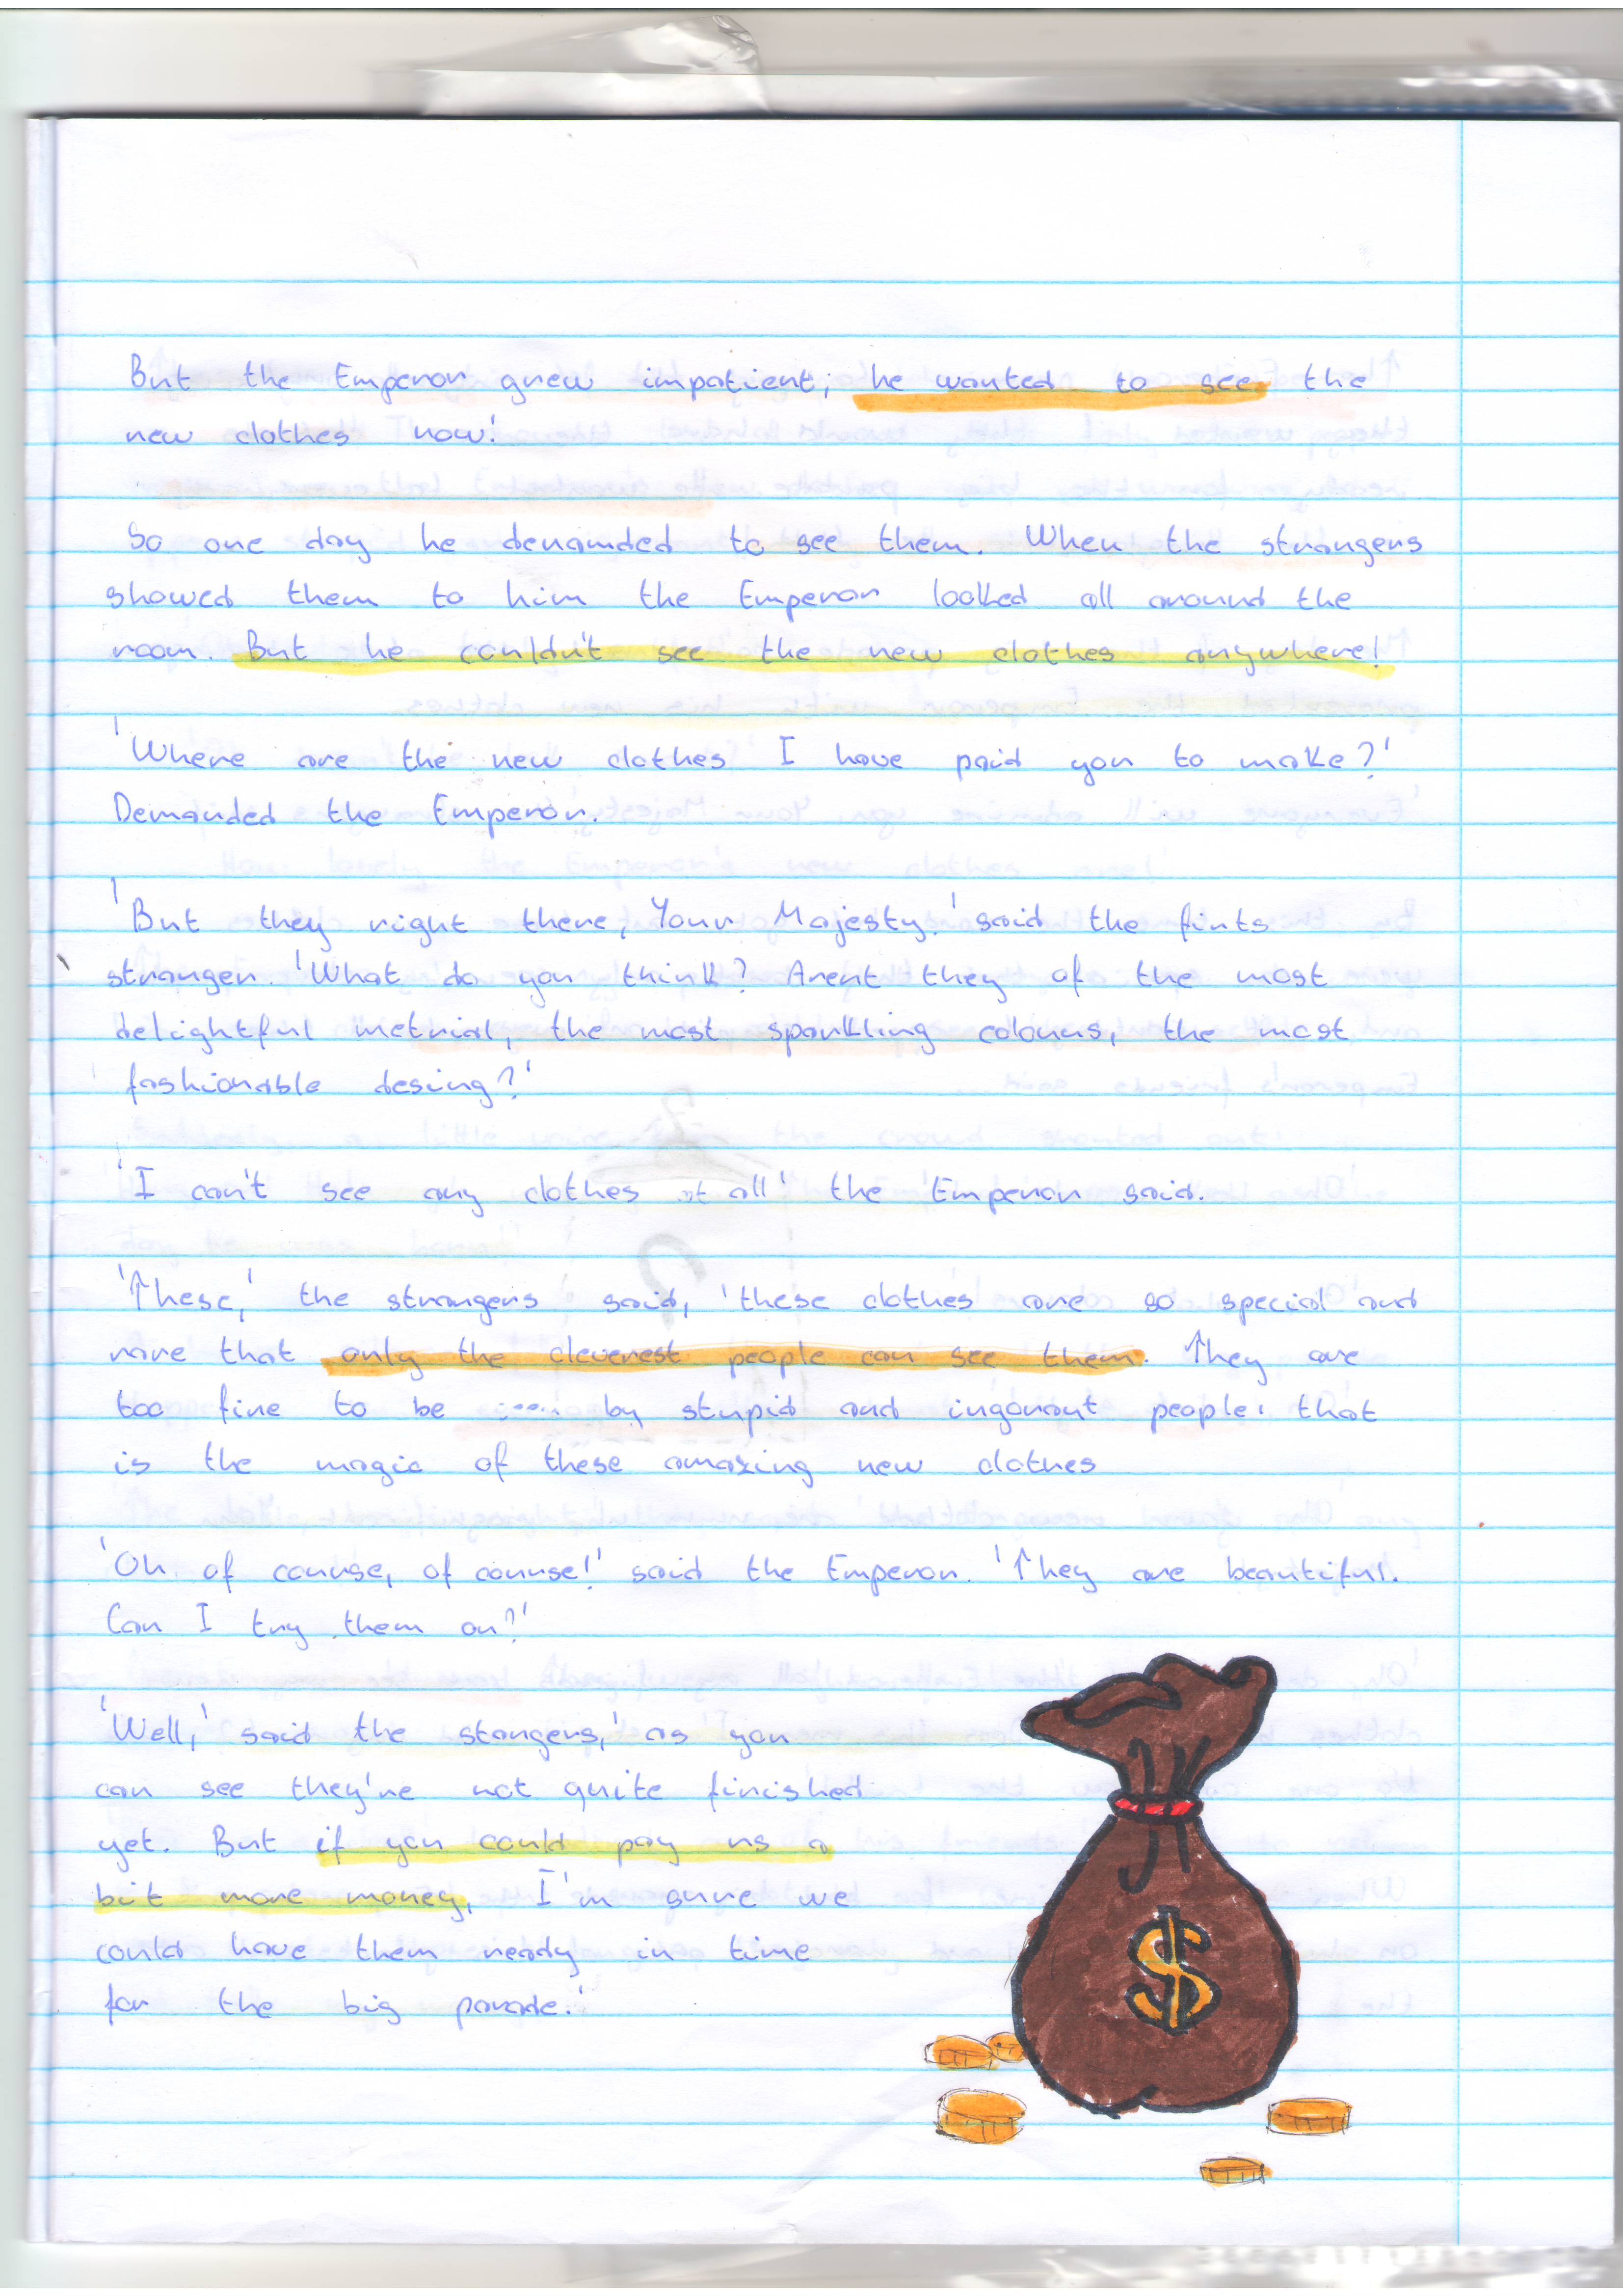 But the Emperor grew impatient; he wanted to see the
new clothes now!
So one day he demanded to see them. When the strangers
showed them to him the Emperor looked all around the
room. But he couldn't see the new clothes anywhere!
'Where are the new clothes I have paid you to make?'
Demanded the Emperor.
'But they right there, Your Majesty,' said the firts
stranger. 'What do you think? Arent they of the most
delightful metrial, the most sparkling colours, the most
fashionable desing?'
'I can't see any clothes at all' the Emperor said.
'These,' the strangers said, 'these clothes are so special and
rare that only the cleverest people can see them. They are
too fine to be seen by stupid and ingorant people: that
is the magic of these amazing new clothes
'Oh of course, of course!' said the Emperor. 'They are beautiful.
Can I try them on?'
'Well,' said the stangers,' as you
can see they're not quite finished
yet. But if you could pay us a
bit more money, I'm sure we
could have them ready in time
for the big parade.'
$